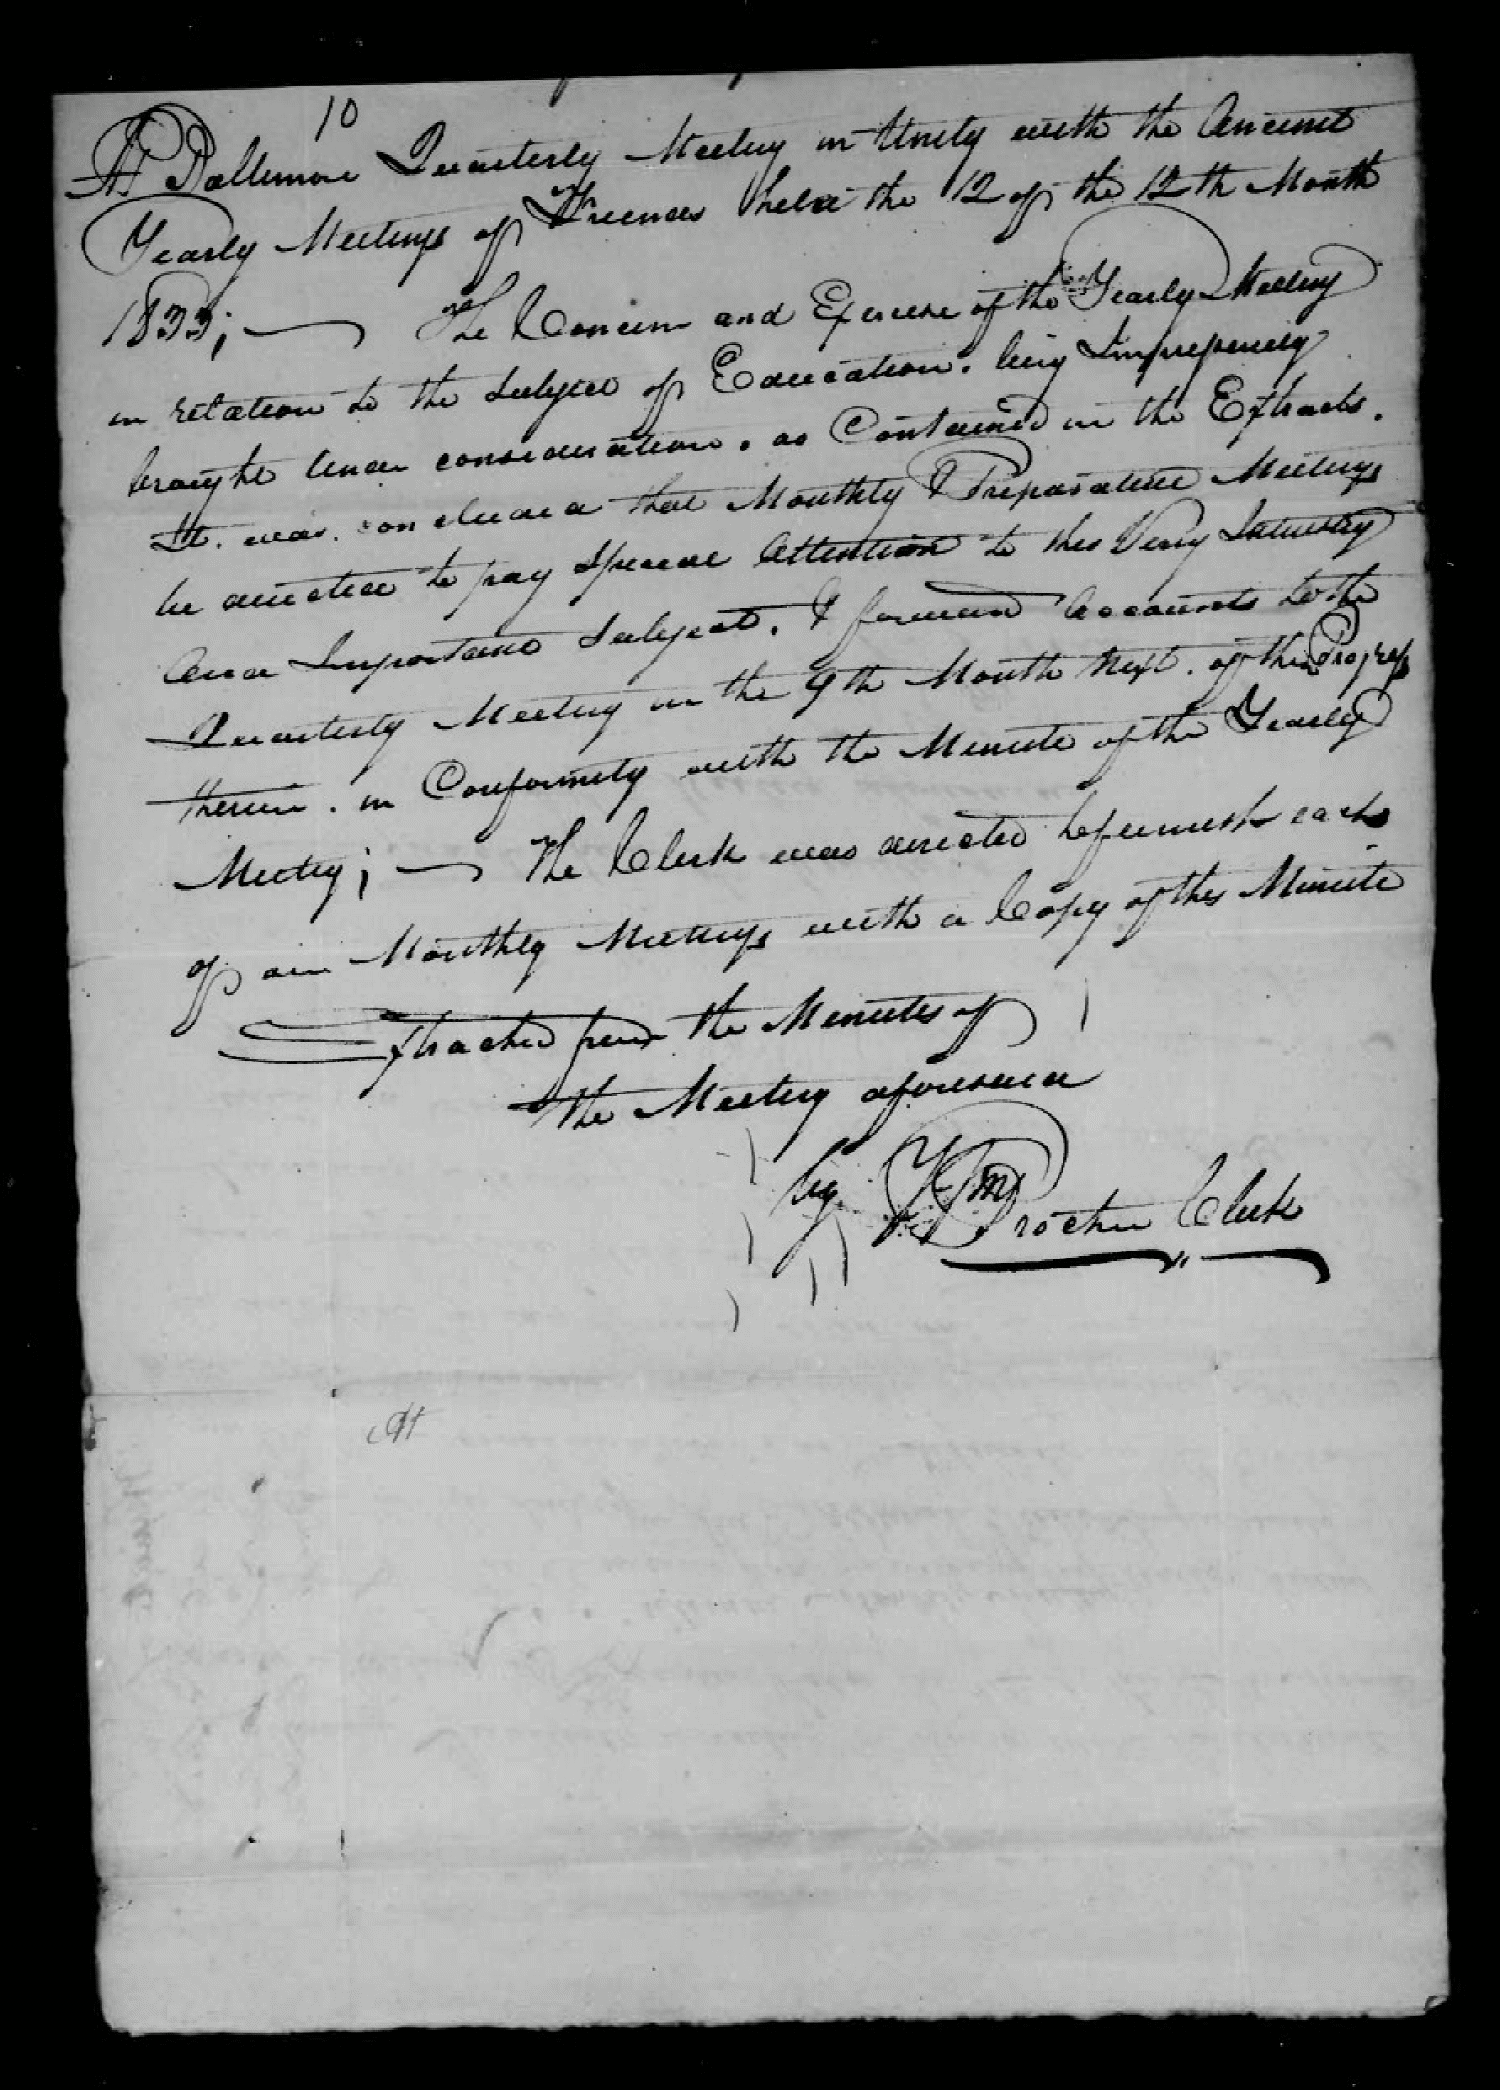 10
At Baltimore Quarterly Meeting in Unity with the Ancient
Yearly Meetings of Friends held the 12 of the 12th Month
1833; — The Concern and Exercise of the Yearly Meeting
in relation to the Subject of Education. being Impressively
brought Under consideration. as Contained in the Extracts.
It. was. concluded that Monthly & Preparative Meetings
be directed to pay Special Attention to this Very Interesting
And Important Subject. & forward Accounts to the
Quarterly Meeting in the 9th Month Next. of their Progress
therein. in Conformity with the Minute of the Yearly
Meeting; — The Clerk was directed to furnish each
of our Monthly Meetings with a Copy of this Minute
Extracted from the Minutes of
the Meeting aforesaid
by Wm Procter Clerk
At